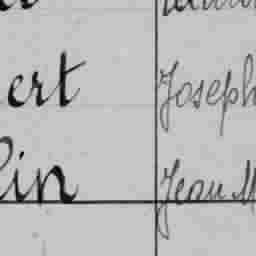 ert Joseph
lin Jean M